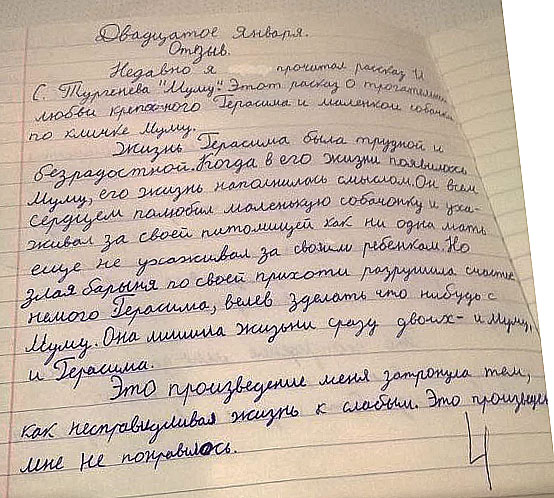 Двадцатое Января.
Отзыв.
Недавно я прочитал рассказ И
С. Тургенева "Муму". Этот расказ о трогательной
любви крепосного Герасима и маленкой собачки
по кличке Муму.
Жизнь Герасима была трудной и
безрадостной. Когда в его жизни появилось
Муму, его жизнь наполнилась смыслом. Он всем
сердцем полюбил маленькую собачонку и уха-
живал за своей питомицей как ни одна мать
еще не ухаживал за своим ребенкам. Но
злая барыня по своей прихоти разрушила счастье
немого Герасима, велев зделать что нибудь с
Муму. Она лишила жизьни сразу двоих- и Муму,
и Герасима.
Это произведение меня затронула тем,
как несправидливая жизнь к слабым. Это произведен
мне не понравилось.
4